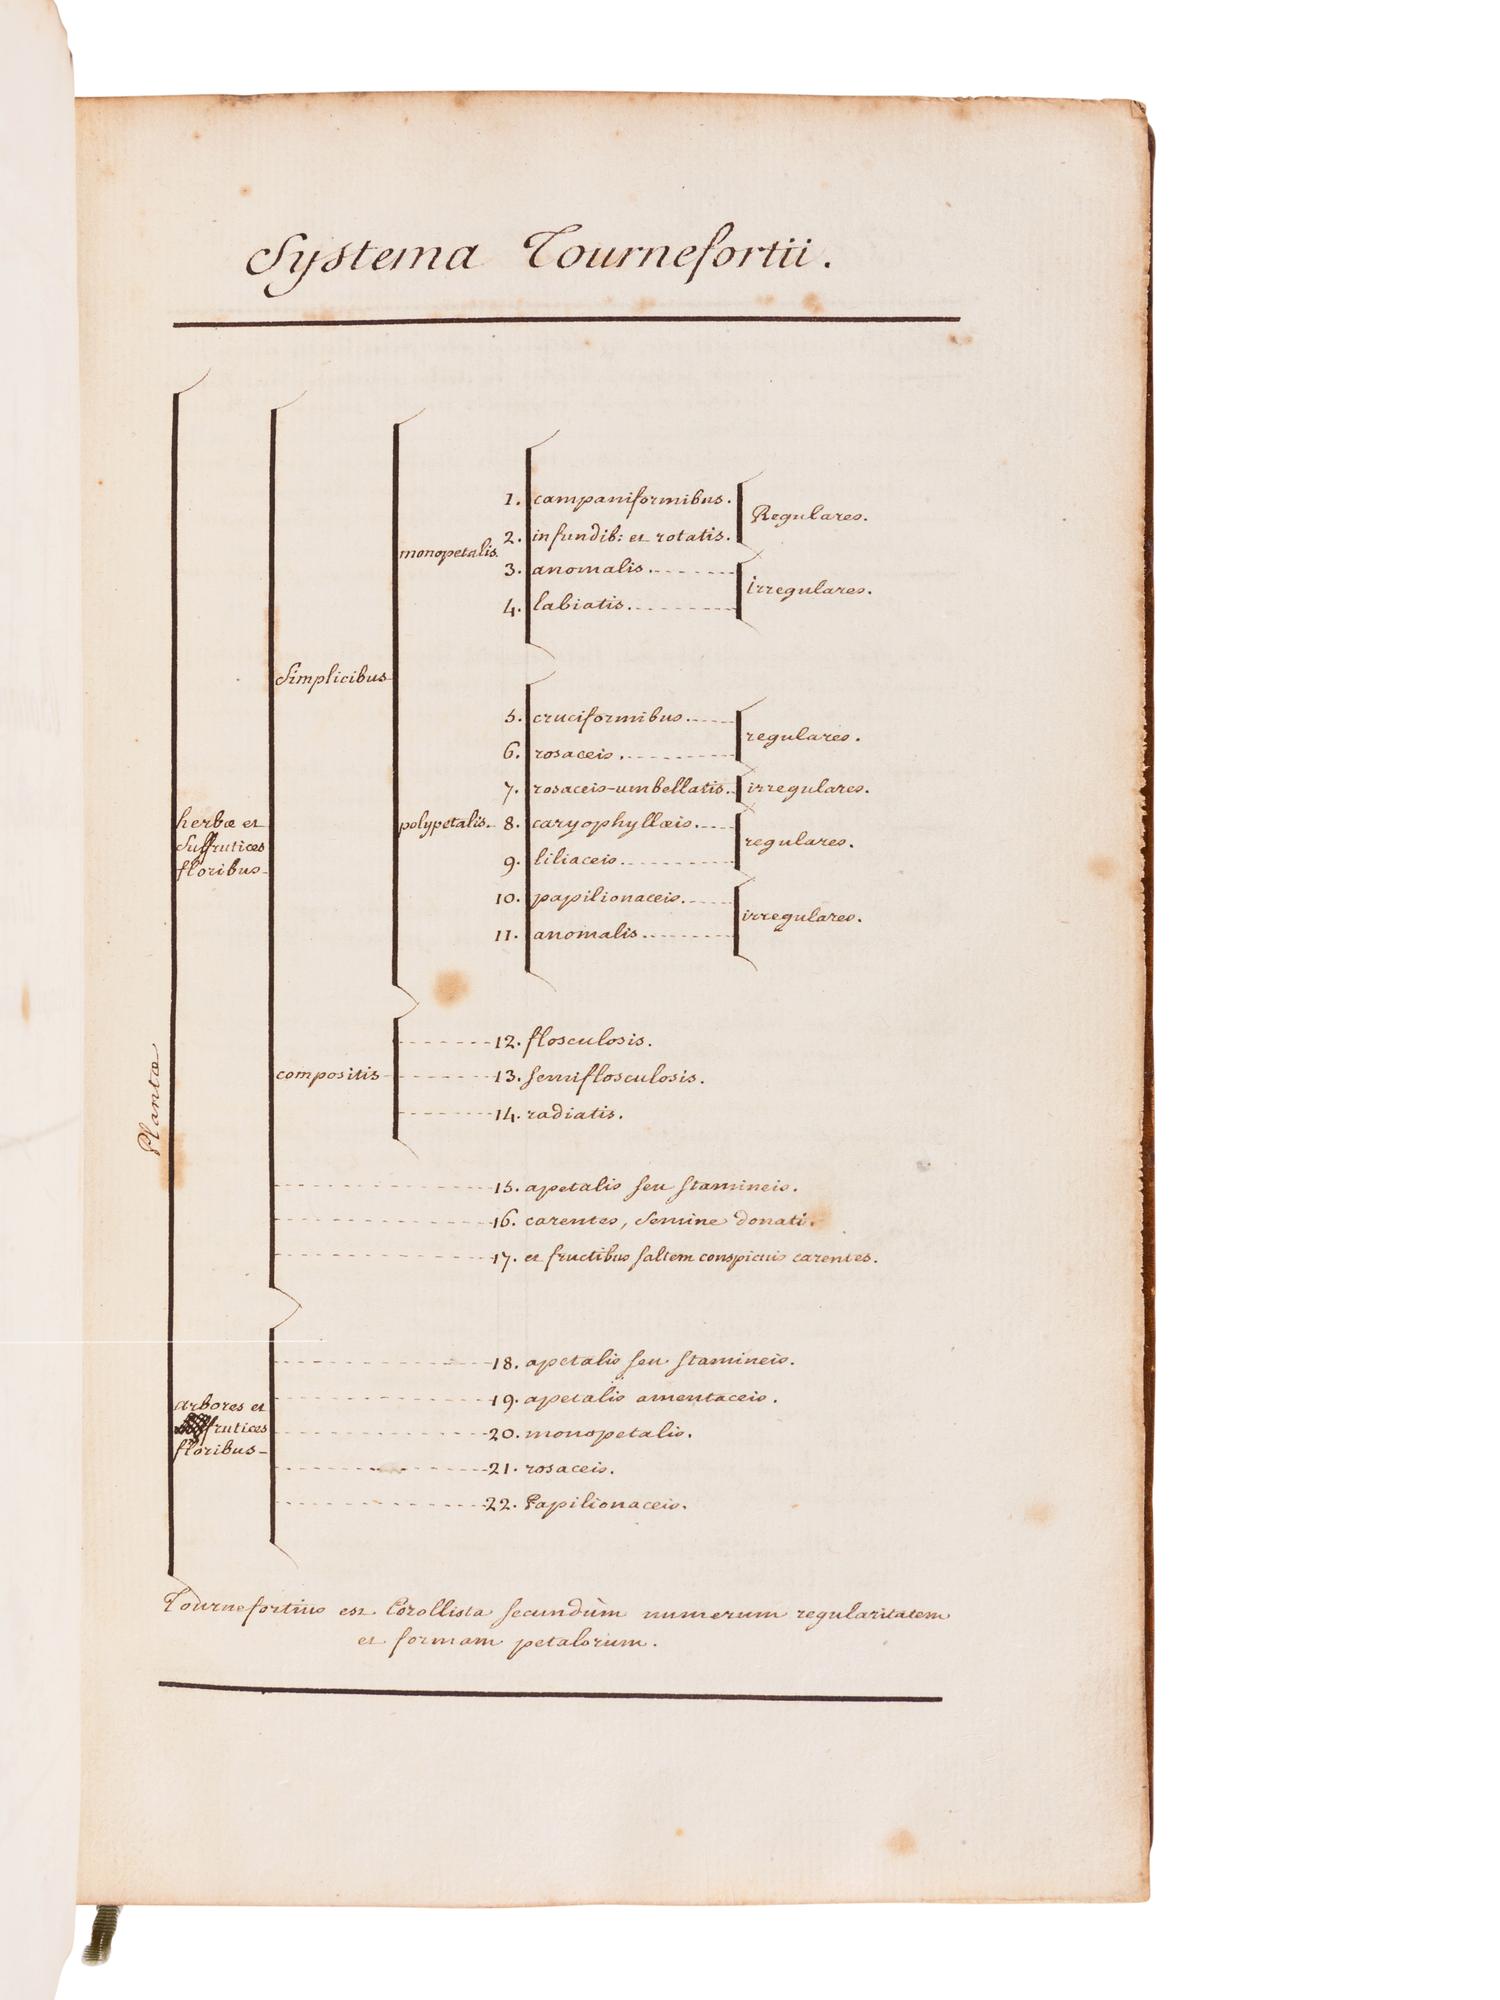 Systema Tournefortii.
Plantæ
herbæ et
Suffrutices
floribus
Simplicibus
monopetalis.
1. campaniformibus.
2. infundib: et rotatis.
Regulares.
3. anomalis.
4. labiatis.
irregulares.
polypetalis.
5. cruciformibus.
6. rosaceis.
regulares.
7. rosaceis-umbellatis. irregulares.
8. caryophyllæis.
9. liliaceis.
regulares.
10. papilionaceis.
11. anomalis.
irregulares.
compositis
12. flosculosis.
13. semiflosculosis.
14. radiatis.
15. apetalis seu stamineis.
16. carentes, Semine donati.
17. et fructibus saltem conspicuis carentes.
arbores et
frutices
floribus
18. apetalis seu stamineis.
19. apetalis amentaceis.
20. monopetalis.
21. rosaceis.
22. Papilionaceis.
Tournefortius est Corollista secundùm numerum regularitatem
et formam petalorum.